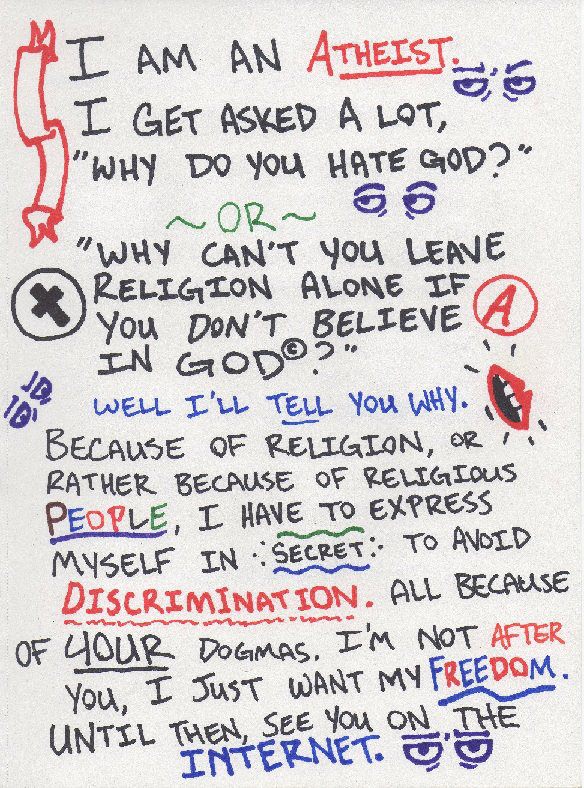 I AM AN ATHEIST.
I GET ASKED A LOT,
"WHY DO YOU HATE GOD?"
~OR~
"WHY CAN'T YOU LEAVE
RELIGION ALONE IF
YOU DON'T BELIEVE
A
IN GOD©?"
WELL I'LL TELL YOU WHY.
BECAUSE OF RELIGION, OR
RATHER BECAUSE OF RELIGIOUS
PEOPLE, I HAVE TO EXPRESS
MYSELF IN SECRET TO AVOID
DISCRIMINATION. ALL BECAUSE
OF YOUR DOGMAS. I'M NOT AFTER
YOU, I JUST WANT MY FREEDOM.
UNTIL THEN, SEE YOU ON THE
INTERNET.